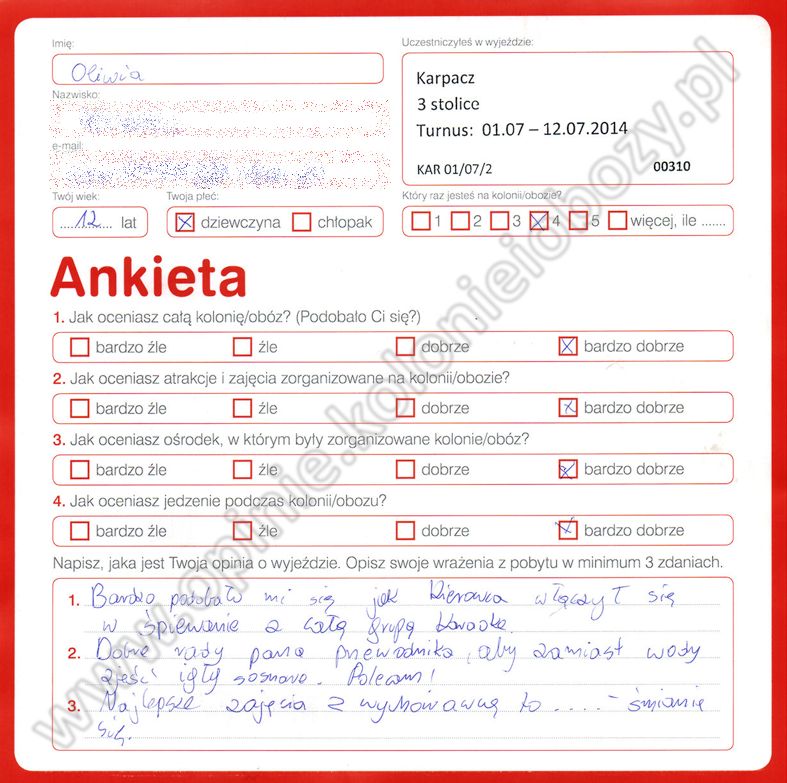 Imię:
Oliwia
Uczestniczyłeś w wyjeździe:
Karpacz
3 stolice
Turnus: 01.07 – 12.07.2014
KAR 01/07/2 00310
Nazwisko:
e-mail:
Twój wiek: Twoja płeć: Który raz jesteś na kolonii/obozie?
....12.... lat dziewczyna chłopak 1 2 3 4 5 więcej, ile .......
Ankieta
1. Jak oceniasz całą kolonię/obóz? (Podobało Ci się?)
bardzo źle źle dobrze bardzo dobrze
2. Jak oceniasz atrakcje i zajęcia zorganizowane na kolonii/obozie?
bardzo źle źle dobrze bardzo dobrze
3. Jak oceniasz ośrodek, w którym były zorganizowane kolonie/obóz?
bardzo źle źle dobrze bardzo dobrze
4. Jak oceniasz jedzenie podczas kolonii/obozu?
bardzo źle źle dobrze bardzo dobrze
Napisz, jaka jest Twoja opinia o wyjeździe. Opisz swoje wrażenia z pobytu w minimum 3 zdaniach.
1. Bardzo podobało mi się jak kierowca włączył się
w śpiewanie z całą grupą karaoke.
2. Dobre rady pana przewodnika, aby zamiast wody
zjeść igły sosnowe. Polecam!
3. Najlepsze zajęcia z wychowawcą to .... – śmianie
się.
www.opinie.kolonieiobozy.pl